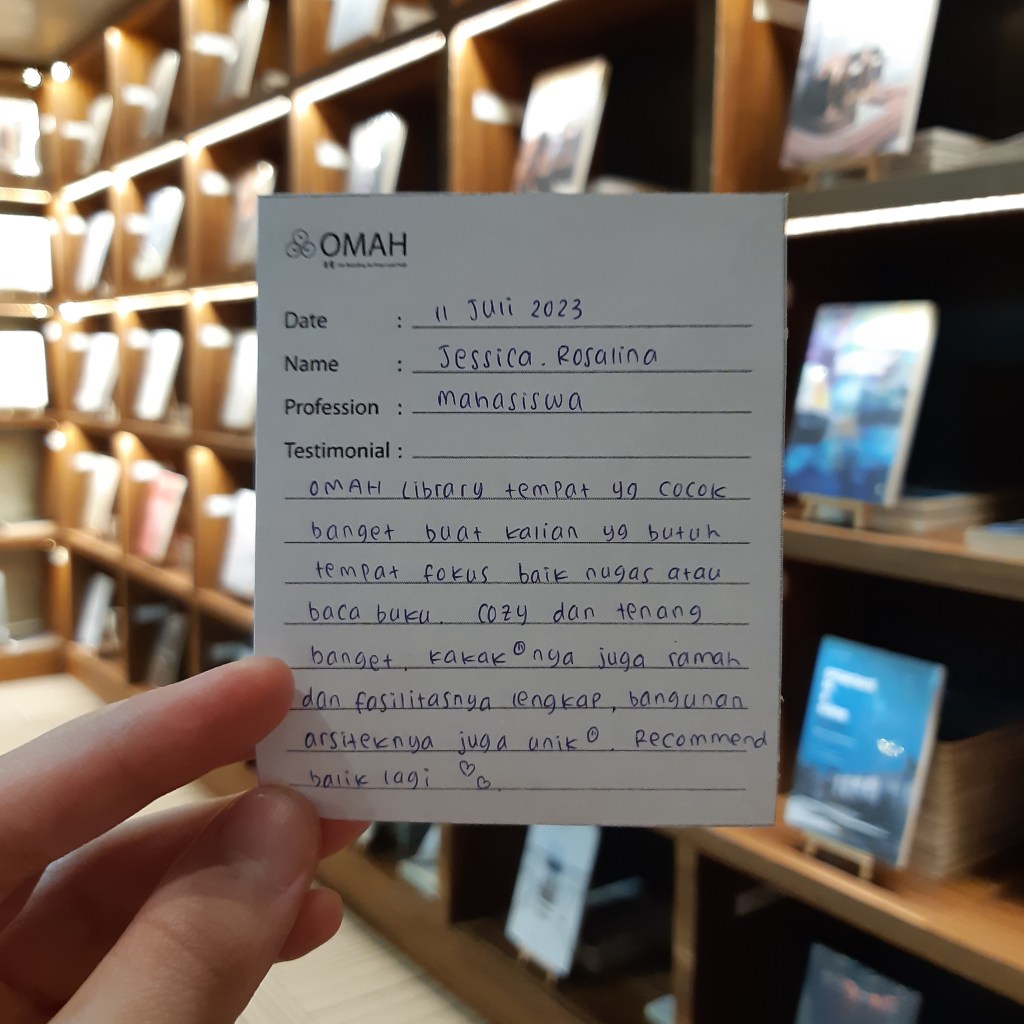 OMAH
Date : 11 Juli 2023
Name : Jessica. Rosalina
Profession : Mahasiswa
Testimonial :
OMAH Library tempat yg cocok
banget buat kalian yg butuh
tempat fokus baik nugas atau
baca buku. Cozy dan tenang
banget. kakak²nya juga ramah
dan fasilitasnya lengkap, bangunan
arsiteknya juga unik². Recommend
balik lagi ♡♡.